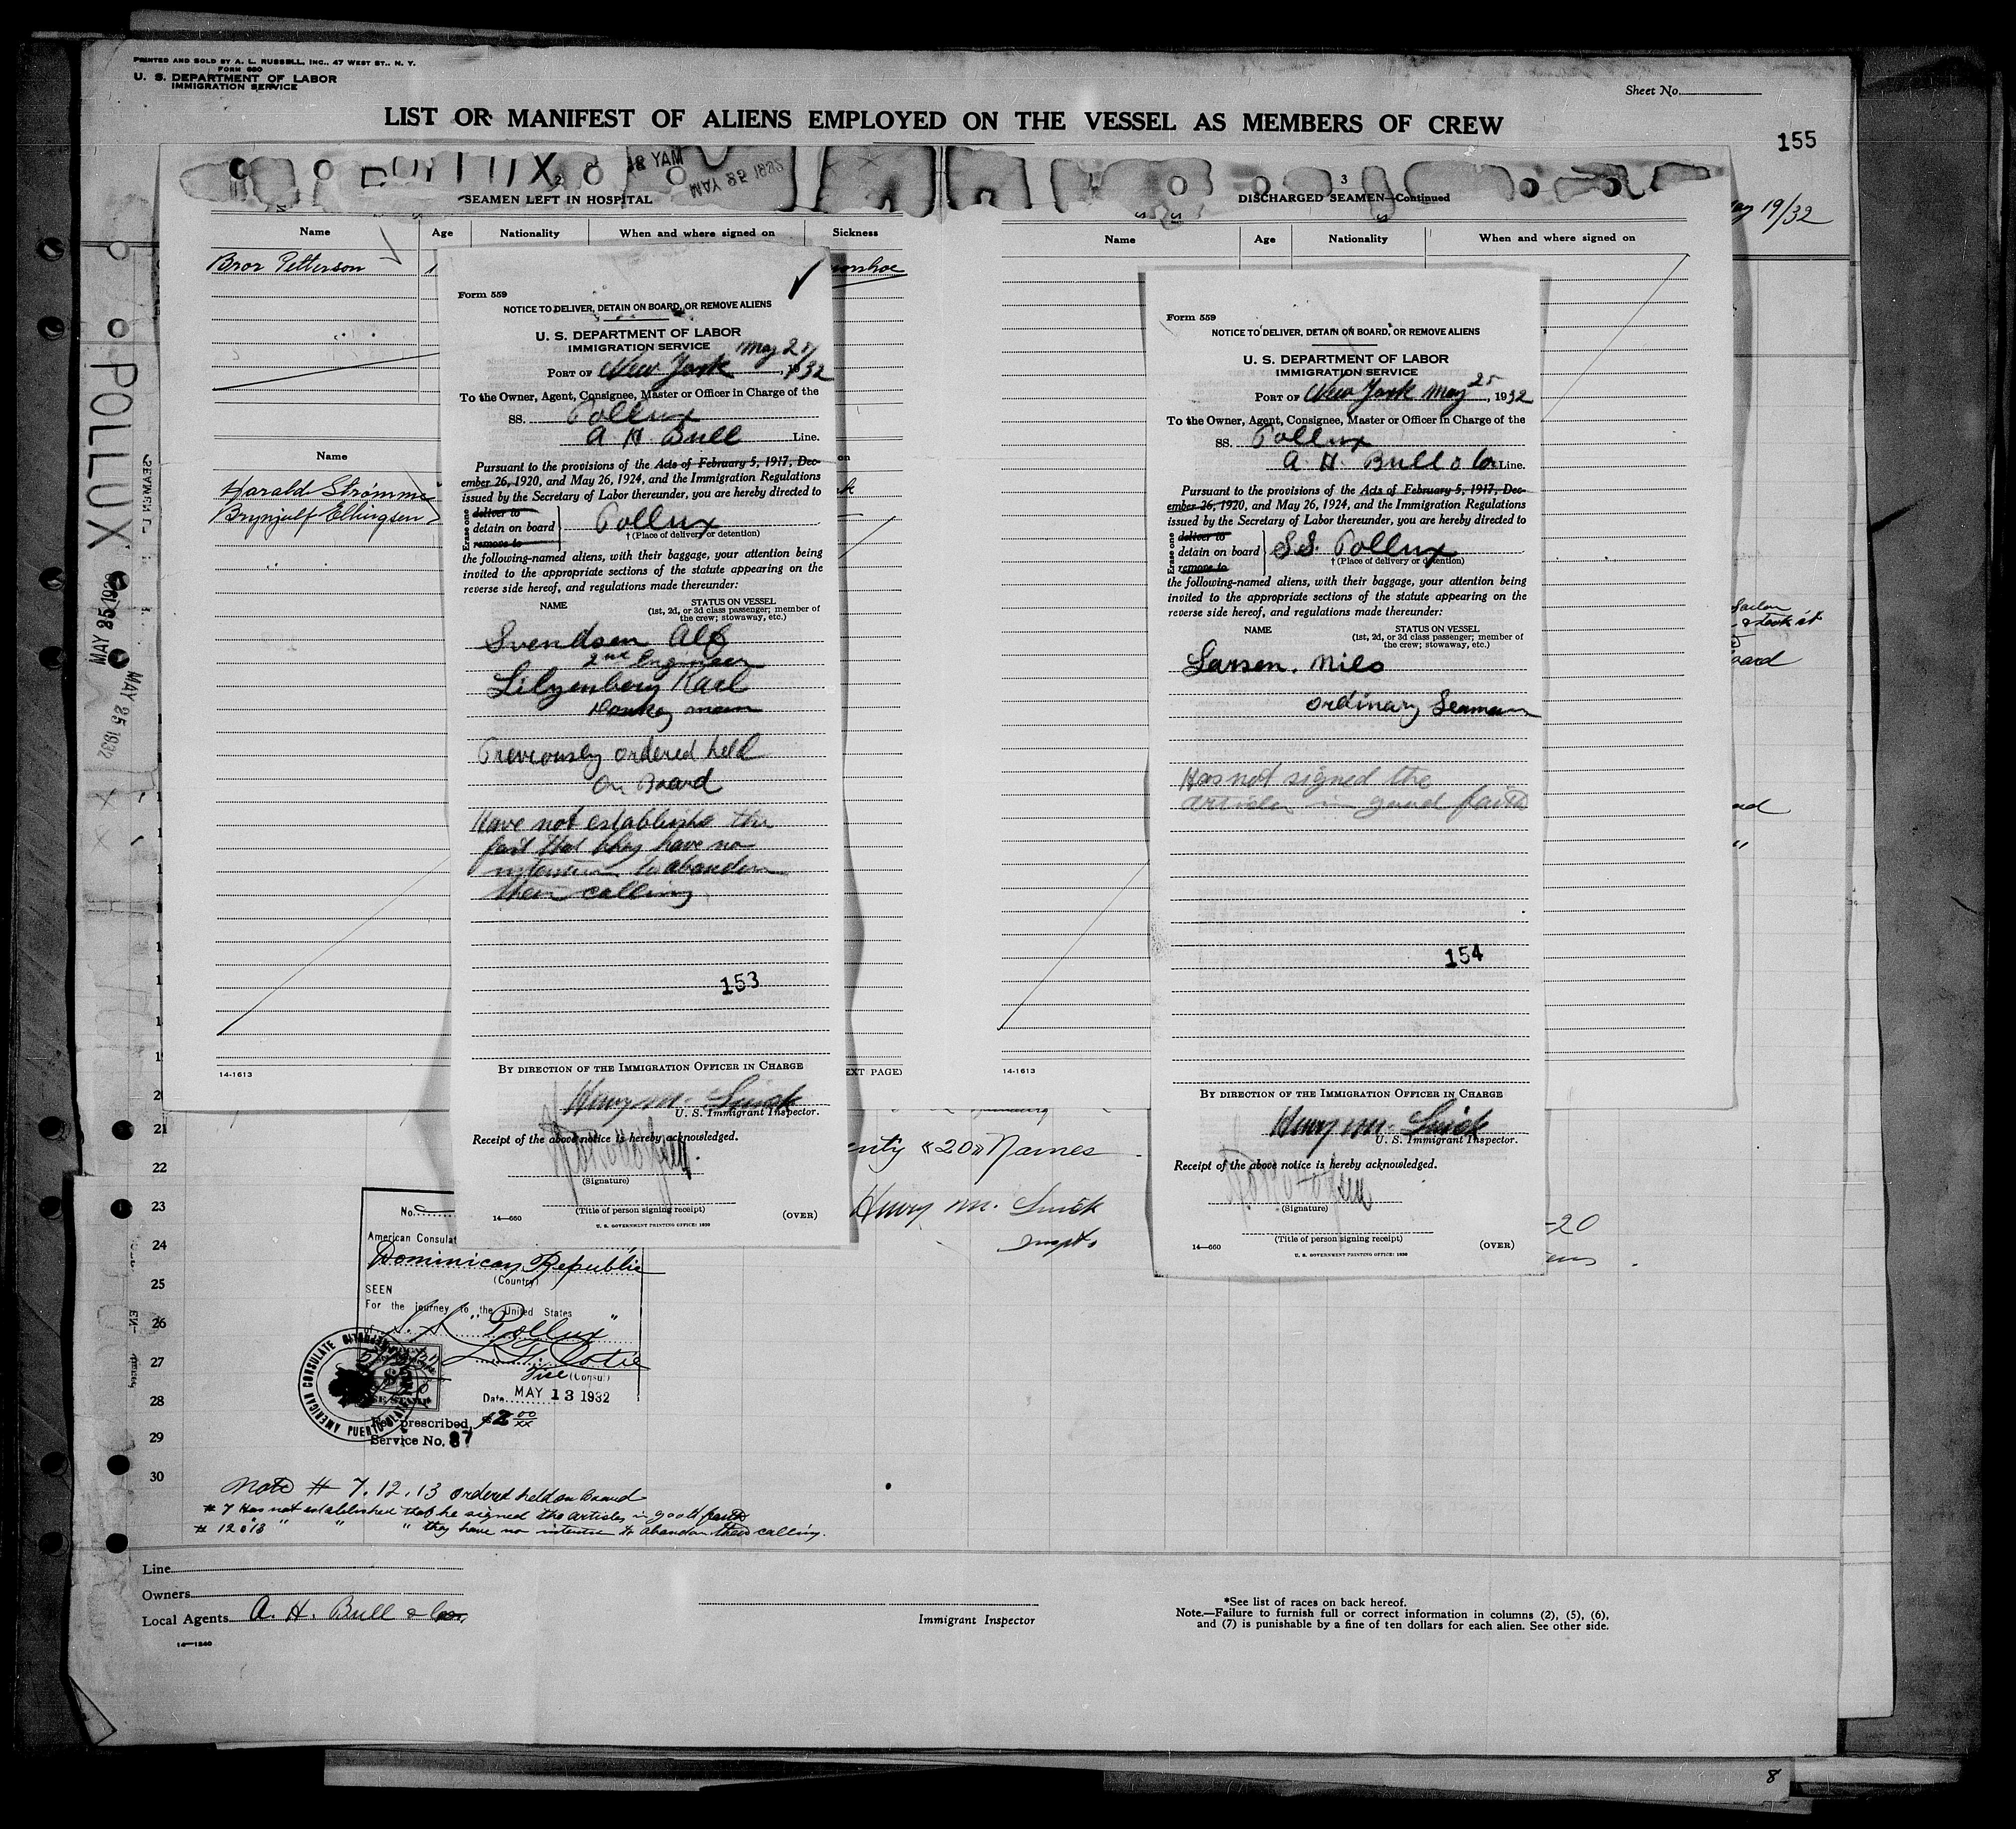 PRINTED AND SOLD BY A. L. RUSSELL, INC., 47 WEST ST., N. Y.
FORM 680
U. S. DEPARTMENT OF LABOR
IMMIGRATION SERVICE
Sheet No.
LIST OR MANIFEST OF ALIENS EMPLOYED ON THE VESSEL AS MEMBERS OF CREW
155
19/32
POLLUX
MAY 25 1932
MAY 25 1932
MAY 25 1932
2
SEAMEN LEFT IN HOSPITAL
Name Age Nationality When and where signed on Sickness
Bror Petterson
Name
Harald Strømme
Brynjulf Ellingsen
14-1613
EXT PAGE)
3
DISCHARGED SEAMEN—Continued
Name Age Nationality When and where signed on
14-1613
Form 559
NOTICE TO DELIVER, DETAIN ON BOARD, OR REMOVE ALIENS
U. S. DEPARTMENT OF LABOR
IMMIGRATION SERVICE
PORT OF New York May 25, 1932
To the Owner, Agent, Consignee, Master or Officer in Charge of the
SS. Pollux
A H. Bull Line.
Pursuant to the provisions of the Acts of February 5, 1917, Dec-
ember 26, 1920, and May 26, 1924, and the Immigration Regulations
issued by the Secretary of Labor thereunder, you are hereby directed to
Erase one
deliver to
detain on board Pollux
remove to
†(Place of delivery or detention)
the following-named aliens, with their baggage, your attention being
invited to the appropriate sections of the statute appearing on the
reverse side hereof, and regulations made thereunder:
NAME STATUS ON VESSEL
(1st, 2d, or 3d class passenger; member of
the crew; stowaway, etc.)
Svendsen Alf
2nd Engineer
Lilyenberg Karl
Donkey man
Previously ordered held
On Board
Have not establishd the
fact that they have no
intention to abandon
their calling
153
BY DIRECTION OF THE IMMIGRATION OFFICER IN CHARGE
Henry M. Smick
U. S. Immigrant Inspector.
Receipt of the above notice is hereby acknowledged.
(Signature)
(Title of person signing receipt)
14—660
U. S. GOVERNMENT PRINTING OFFICE: 1930
(OVER)
Form 559
NOTICE TO DELIVER, DETAIN ON BOARD, OR REMOVE ALIENS
U. S. DEPARTMENT OF LABOR
IMMIGRATION SERVICE
PORT OF New York May 25, 1932
To the Owner, Agent, Consignee, Master or Officer in Charge of the
SS. Pollux
A. H. Bull & Co Line.
Pursuant to the provisions of the Acts of February 5, 1917, Dec-
ember 26, 1920, and May 26, 1924, and the Immigration Regulations
issued by the Secretary of Labor thereunder, you are hereby directed to
Erase one
deliver to
detain on board S.S. Pollux
remove to
†(Place of delivery or detention)
the following-named aliens, with their baggage, your attention being
invited to the appropriate sections of the statute appearing on the
reverse side hereof, and regulations made thereunder:
NAME STATUS ON VESSEL
(1st, 2d, or 3d class passenger; member of
the crew; stowaway, etc.)
Larsen. Nils
ordinary Seaman
Has not signed the
articles in good faith
154
BY DIRECTION OF THE IMMIGRATION OFFICER IN CHARGE
Henry M. Smick
U. S. Immigrant Inspector.
Receipt of the above notice is hereby acknowledged.
(Signature)
(Title of person signing receipt)
14—660
U. S. GOVERNMENT PRINTING OFFICE: 1930
(OVER)
enty «20» Names
Henry M. Smick
Insptr
-20
21
22
23
24
25
26
27
28
29
30
No.
American Consulat
Dominican Republic
(Country)
SEEN
For the journey to the United States
of S.S. "Pollux"
Vice (Consul)
Date MAY 13 1932
AMERICAN CONSULATE
prescribed, $2 00/xx
Service No. 87
Note # 7. 12. 13 ordered held on board
# 7 Has not established that he signed the articles in good faith
# 12 & 13 " " " they have no intention to abandon their calling.
Line
Owners
Local Agents A. H. Bull & Co.
14—1240
Immigrant Inspector
*See list of races on back hereof.
Note.—Failure to furnish full or correct information in columns (2), (5), (6),
and (7) is punishable by a fine of ten dollars for each alien. See other side.
8